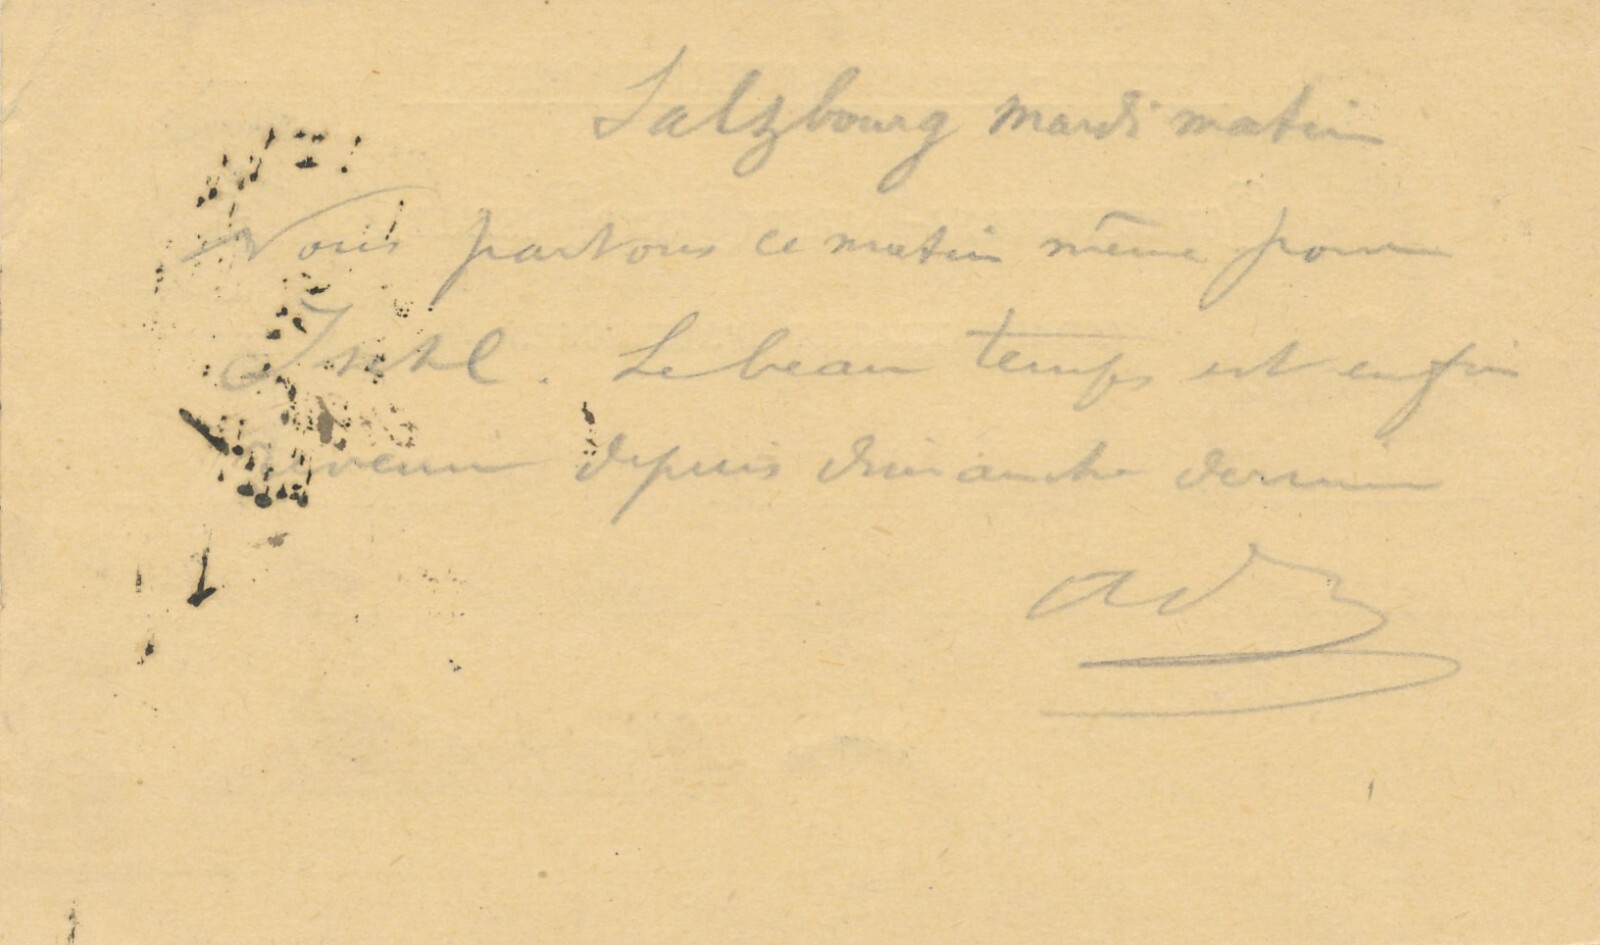 Salzbourg mardi matin
Nous partons ce matin même pour
Ischl. Le beau temps est enfin
revenu depuis dimanche dernier